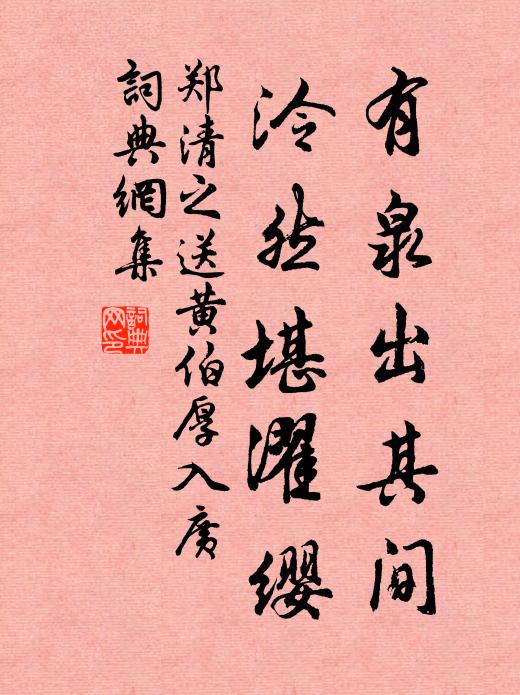 有泉出其间
泠然堪濯缨
郑清之送黄伯厚入广
词典網集
詞典网印